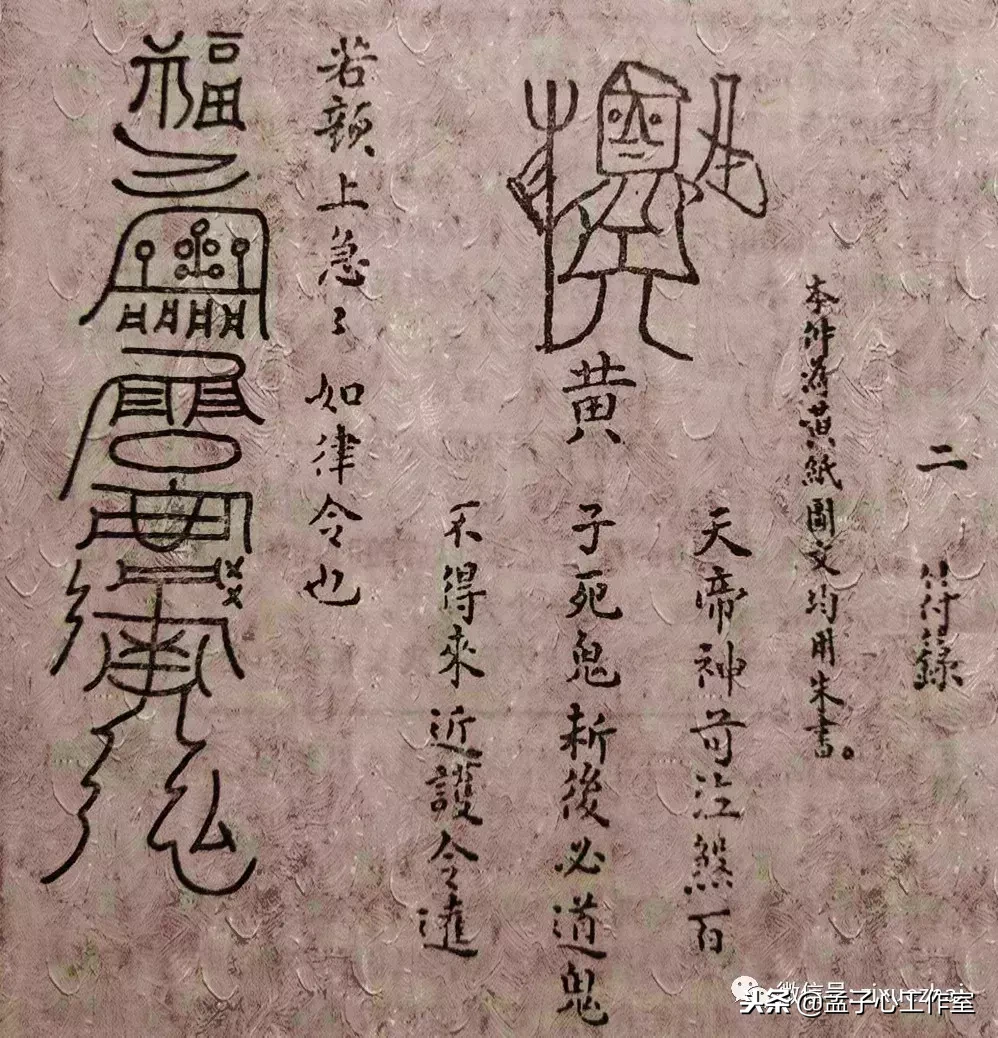 二 符籙
本件爲黄紙圖文均用朱書。
黄
天帝神 泣煞百
子死鬼斬後必道鬼
不得來近護令達
若 上急〻如律令也
福
头条 @孟子心工作室
微信号